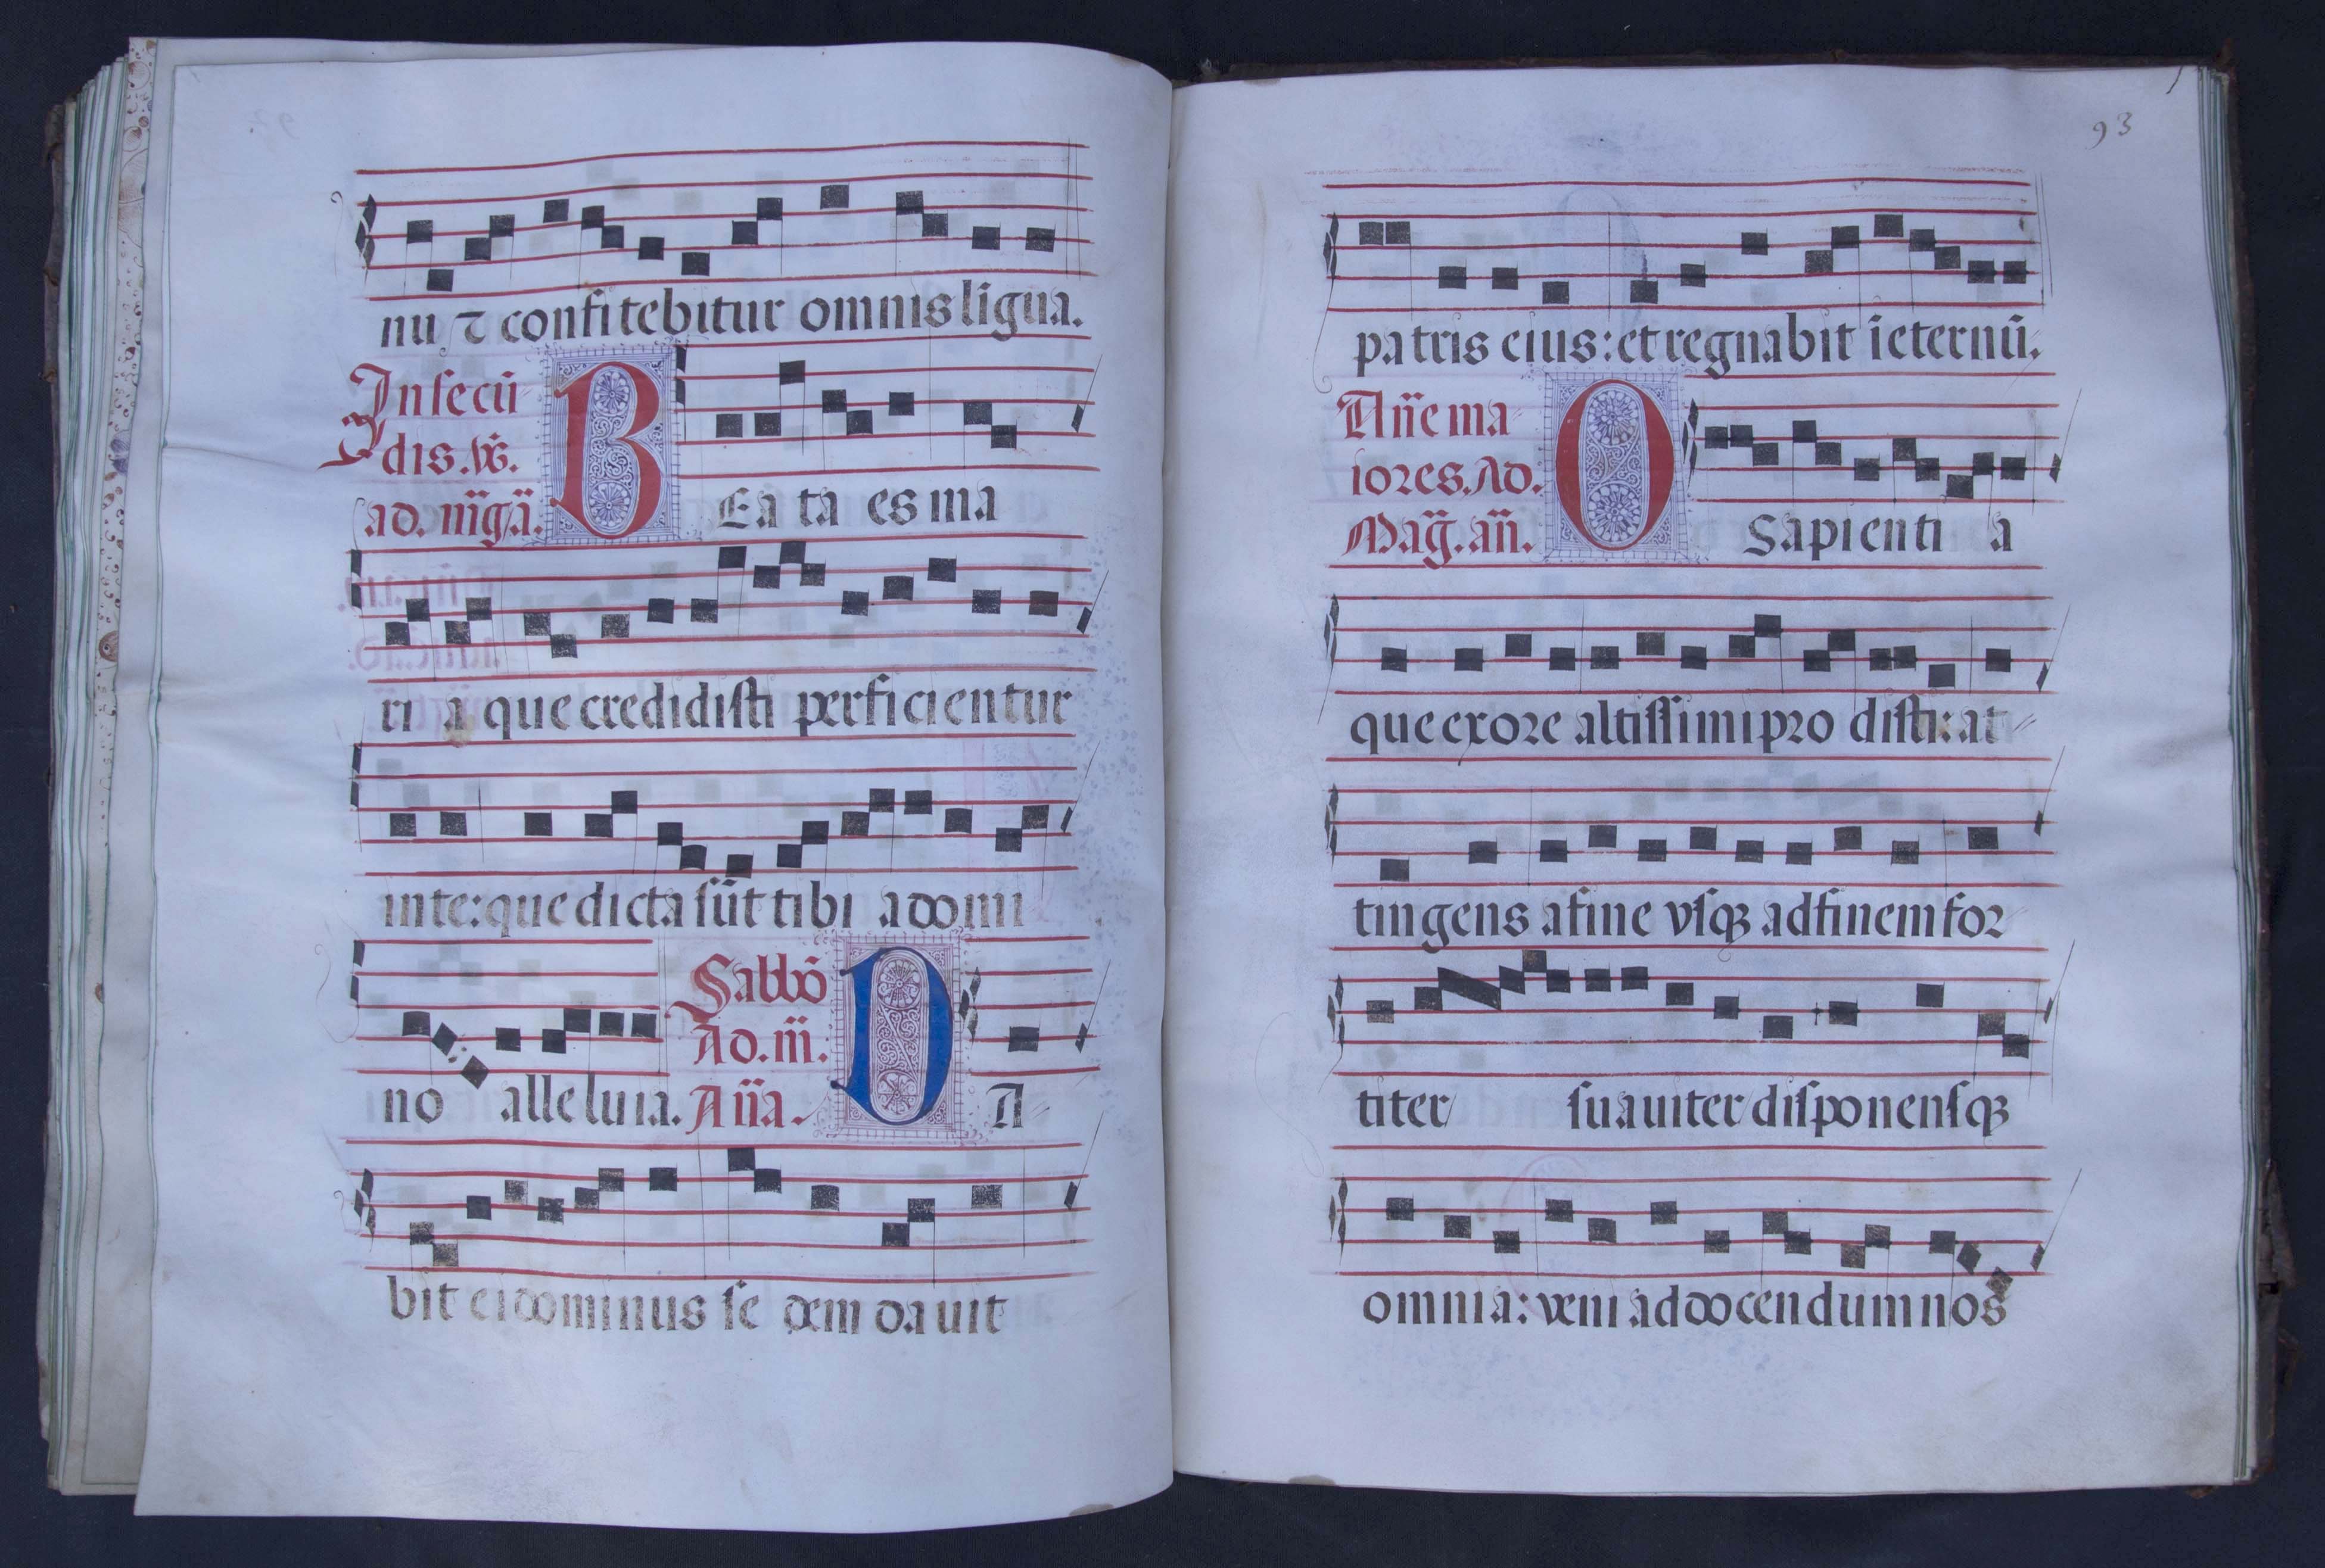 nu ⁊ confitebitur omnis līgua.
In secū
dis. vs̃.
ad. m̄gā.
BEata es ma
ria que credidisti perficientur
in te: que dicta sūt tibi a domi
no alleluia.
Sabbō
Ad. m̄.
An̄a.
DA-
bit ei dominus sedem dauit
93
patris eius: et regnabit ī eternū.
An̄e ma-
iores. Ad.
Mag̃. an̄.
O Sapientia
que ex ore altissimi prodisti: at-
tingens a fine vsqꝫ ad finem for-
titer suauiter disponensqꝫ
omnia: veni ad docendum nos